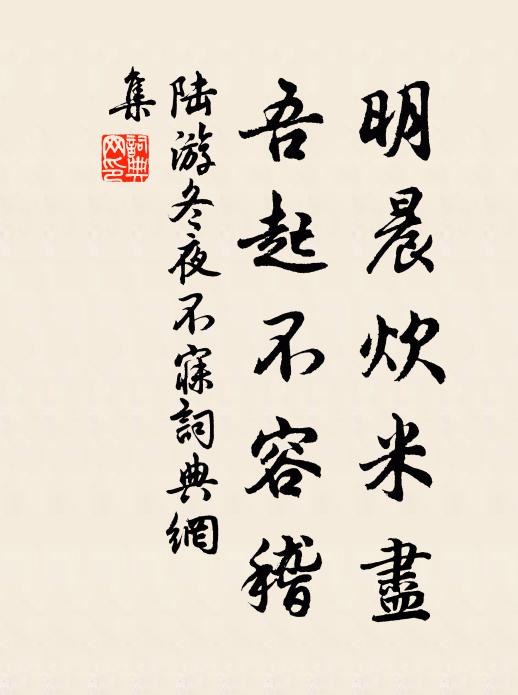 明晨炊米盡
吾起不容稽
陆游冬夜不寐詞典網
集
詞典
网印